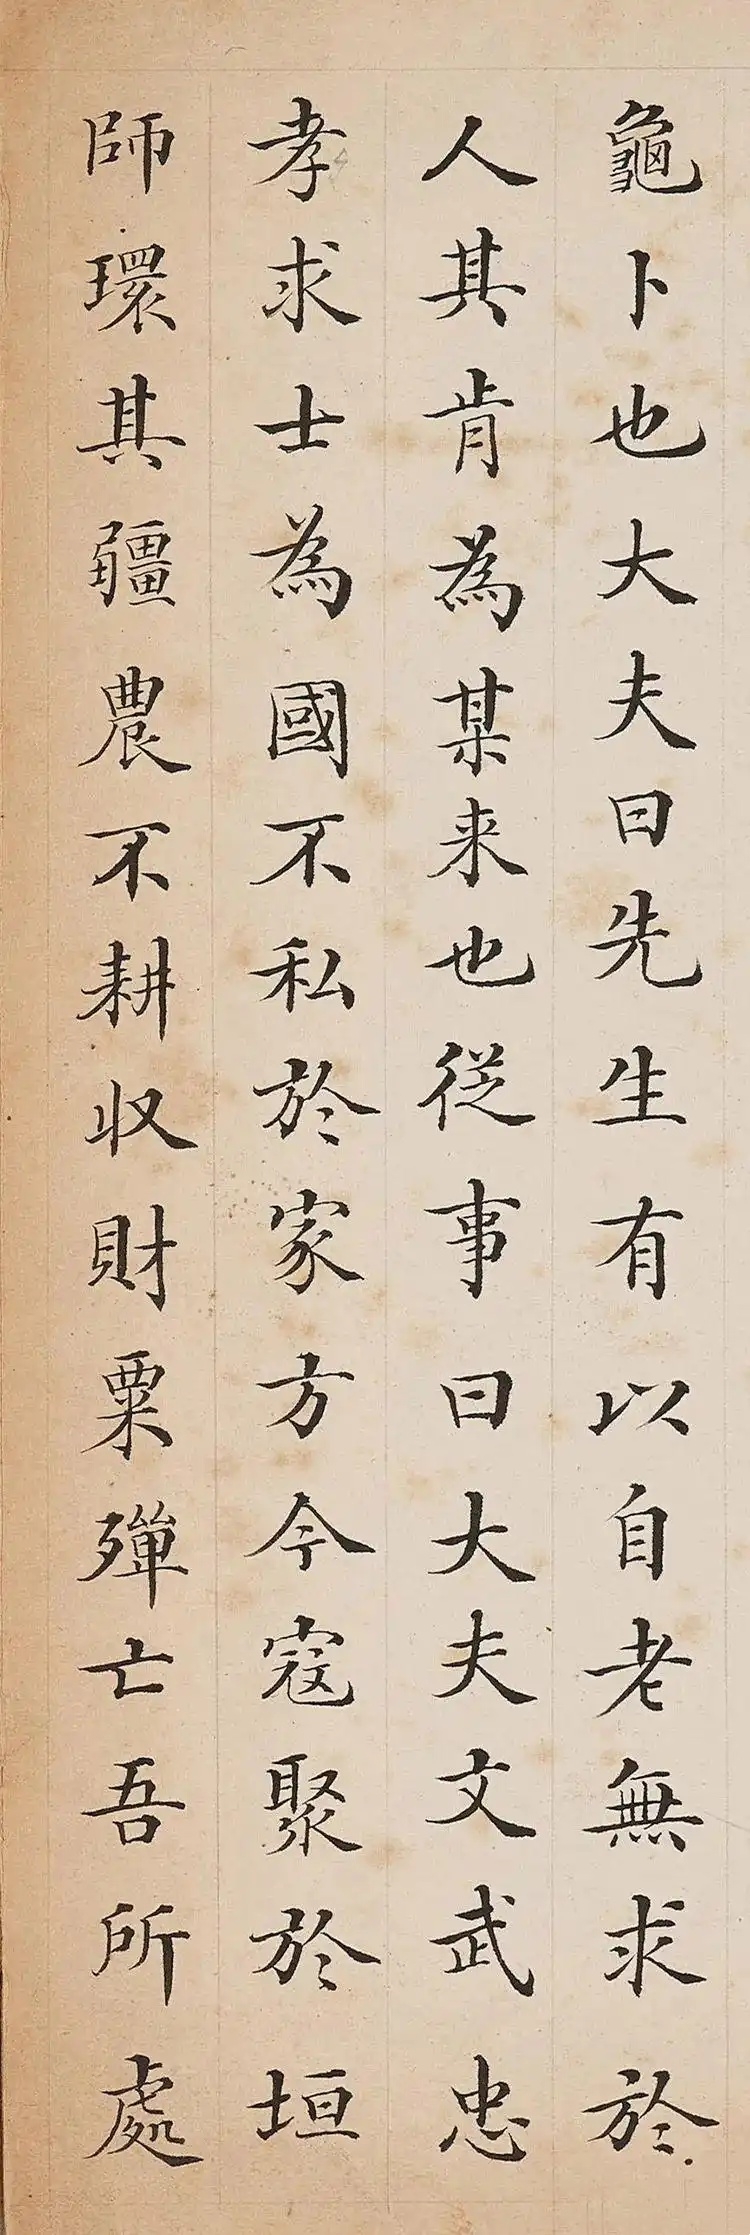 龜卜也大夫曰先生有以自老無求於
人其肯為某来也従事曰大夫文武忠
孝求士為國不私於家方今寇聚於垣
師環其疆農不耕収財粟殫亡吾所處